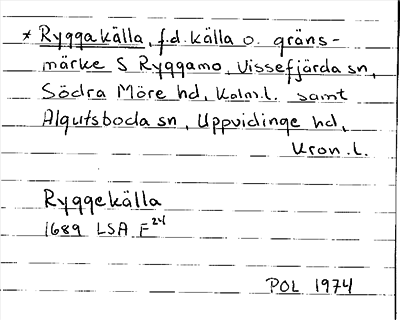 * Ryggakälla, f.d. källa o. gräns-
märke S Ryggamo, Vissefjärda sn,
Södra Möre hd, Kalm.l. samt
Algutsboda sn, Uppvidinge hd,
Kron.l.
Ryggekälla
1689 LSA F24
POL 1974